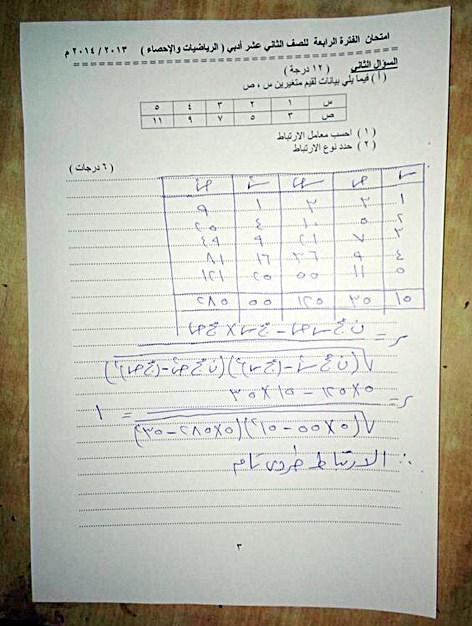 امتحان الفترة الرابعة للصف الثاني عشر أدبي ( الرياضيات والإحصاء ) ٢٠١٣ / ٢٠١٤ م
السؤال الثاني ( ١٢ درجة )
( أ ) فيما يلي بيانات لقيم متغيرين س ، ص
س ١ ٢ ٣ ٤ ٥
ص ٣ ٥ ٧ ٩ ١١
( ١ ) احسب معامل الارتباط
( ٢ ) حدد نوع الارتباط
( ٦ درجات )
س ص س ص س٢ ص٢
١ ٣ ٣ ١ ٩
٢ ٥ ١٠ ٤ ٢٥
٣ ٧ ٢١ ٩ ٤٩
٤ ٩ ٣٦ ١٦ ٨١
٥ ١١ ٥٥ ٢٥ ١٢١
١٥ ٣٥ ١٢٥ ٥٥ ٢٨٥
ر = ن مج س ص - مج س × مج ص
√(ن مج س٢ - (مج س)٢)(ن مج ص٢ - (مج ص)٢)
ر = ٥×١٢٥ - ١٥×٣٥ = ١
√(٥×٥٥ - ١٥٢)(٥×٢٨٥ - ٣٥٢)
∴ الارتباط طردى تام
٣